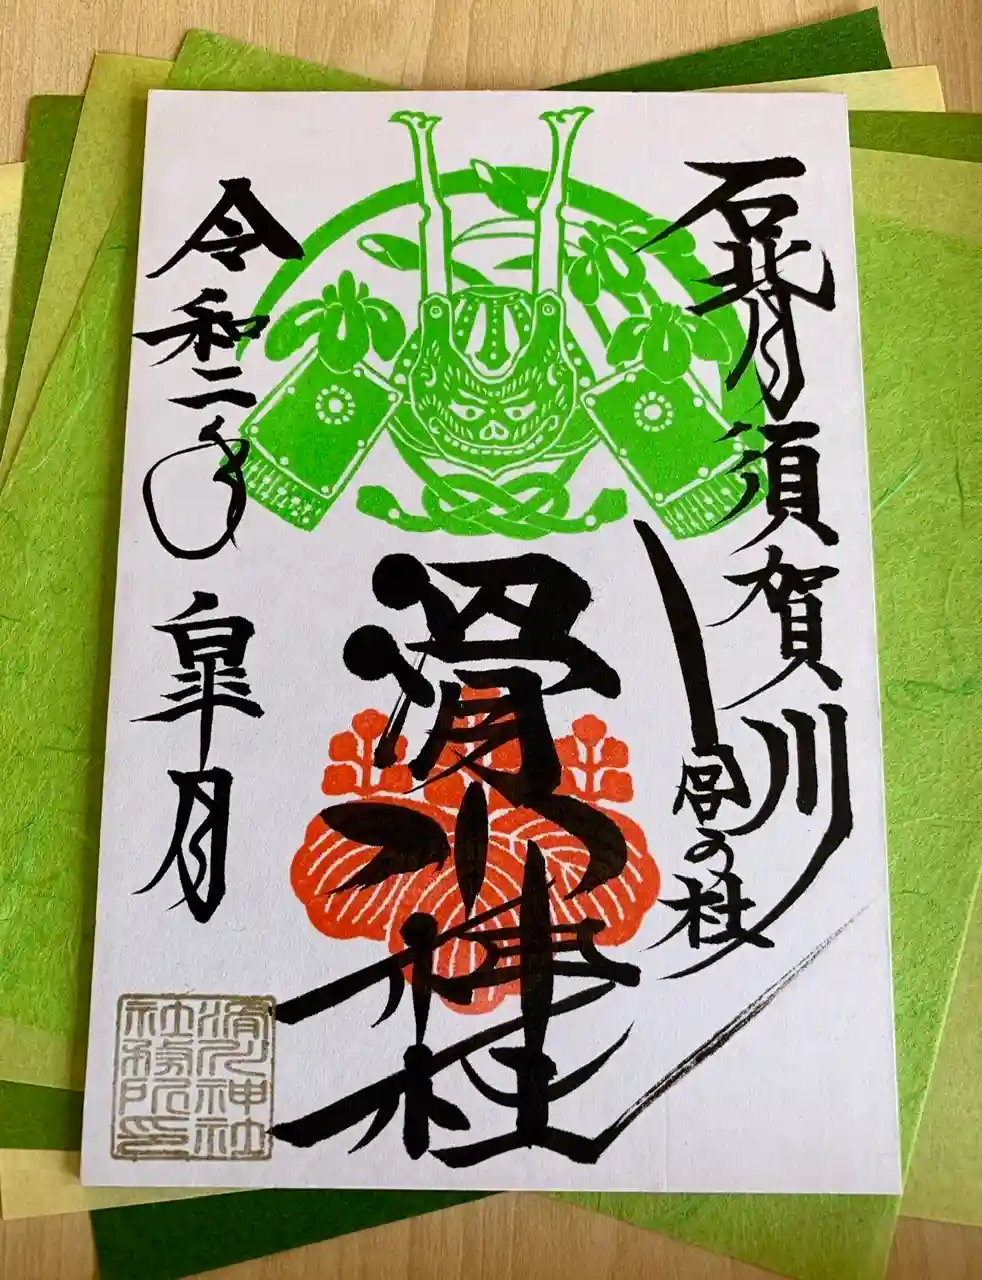 石背須賀川
宮の杜
滑川神社
令和二年 皐月
滑川神社
社務所印